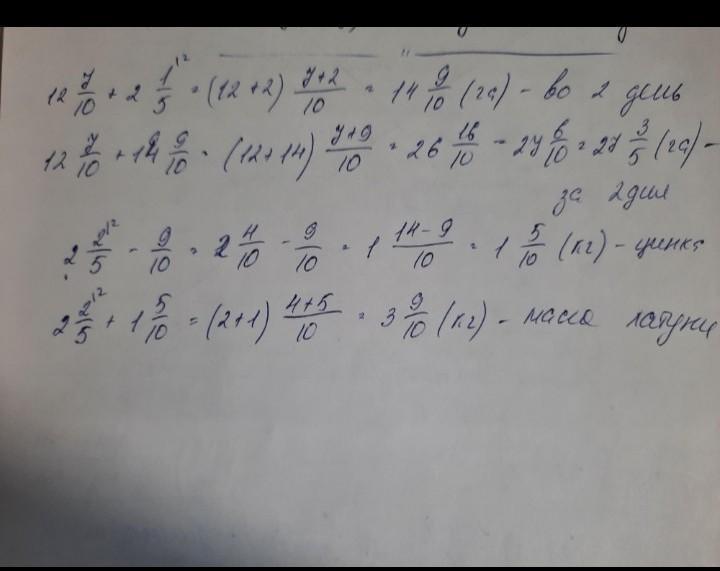 12 7/10 + 2 1/5 = (12+2) 7+2/10 = 14 9/10 (га) - во 2 день
12 7/10 + 14 9/10 = (12+14) 7+9/10 = 26 16/10 = 27 6/10 = 27 3/5 (га) -
за 2 дня
2 2/5 - 9/10 = 2 4/10 - 9/10 = 1 14-9/10 = 1 5/10 (кг) - цинка
2 2/5 + 1 5/10 = (2+1) 4+5/10 = 3 9/10 (кг) - масса латуни